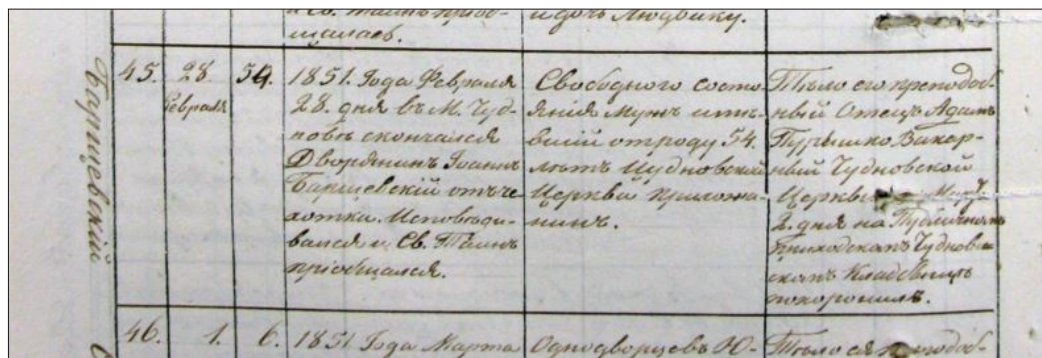 и Св. Таинъ приоб-
щалась.
и дочь Людвику.
Барщевскій
45. 28. Февраля 54.
1851. Года Февраля
28. дня въ М. Чуд-
новѣ скончался
Дворянинъ Іоаннъ
Барщевскій отъ че-
хотки. Исповѣды-
вался и Св. Таинъ
пріобщался.
Свободнаго состо-
янія мужъ имѣ-
вшій отроду 54.
лѣтъ Чудновскій
Церкви прихожа-
нинъ.
Тѣло его преподоб-
ный Отецъ Адамъ
Пурышко Викар-
ный Чудновской
Церквы
2. дня на Публичномъ
Приходскомъ Чудновс-
комъ Кладбищѣ
похоронилъ.
46. 1. 6. 1851 Года Марта
Однодворцевъ Ю-
Тѣло ея преподоб-